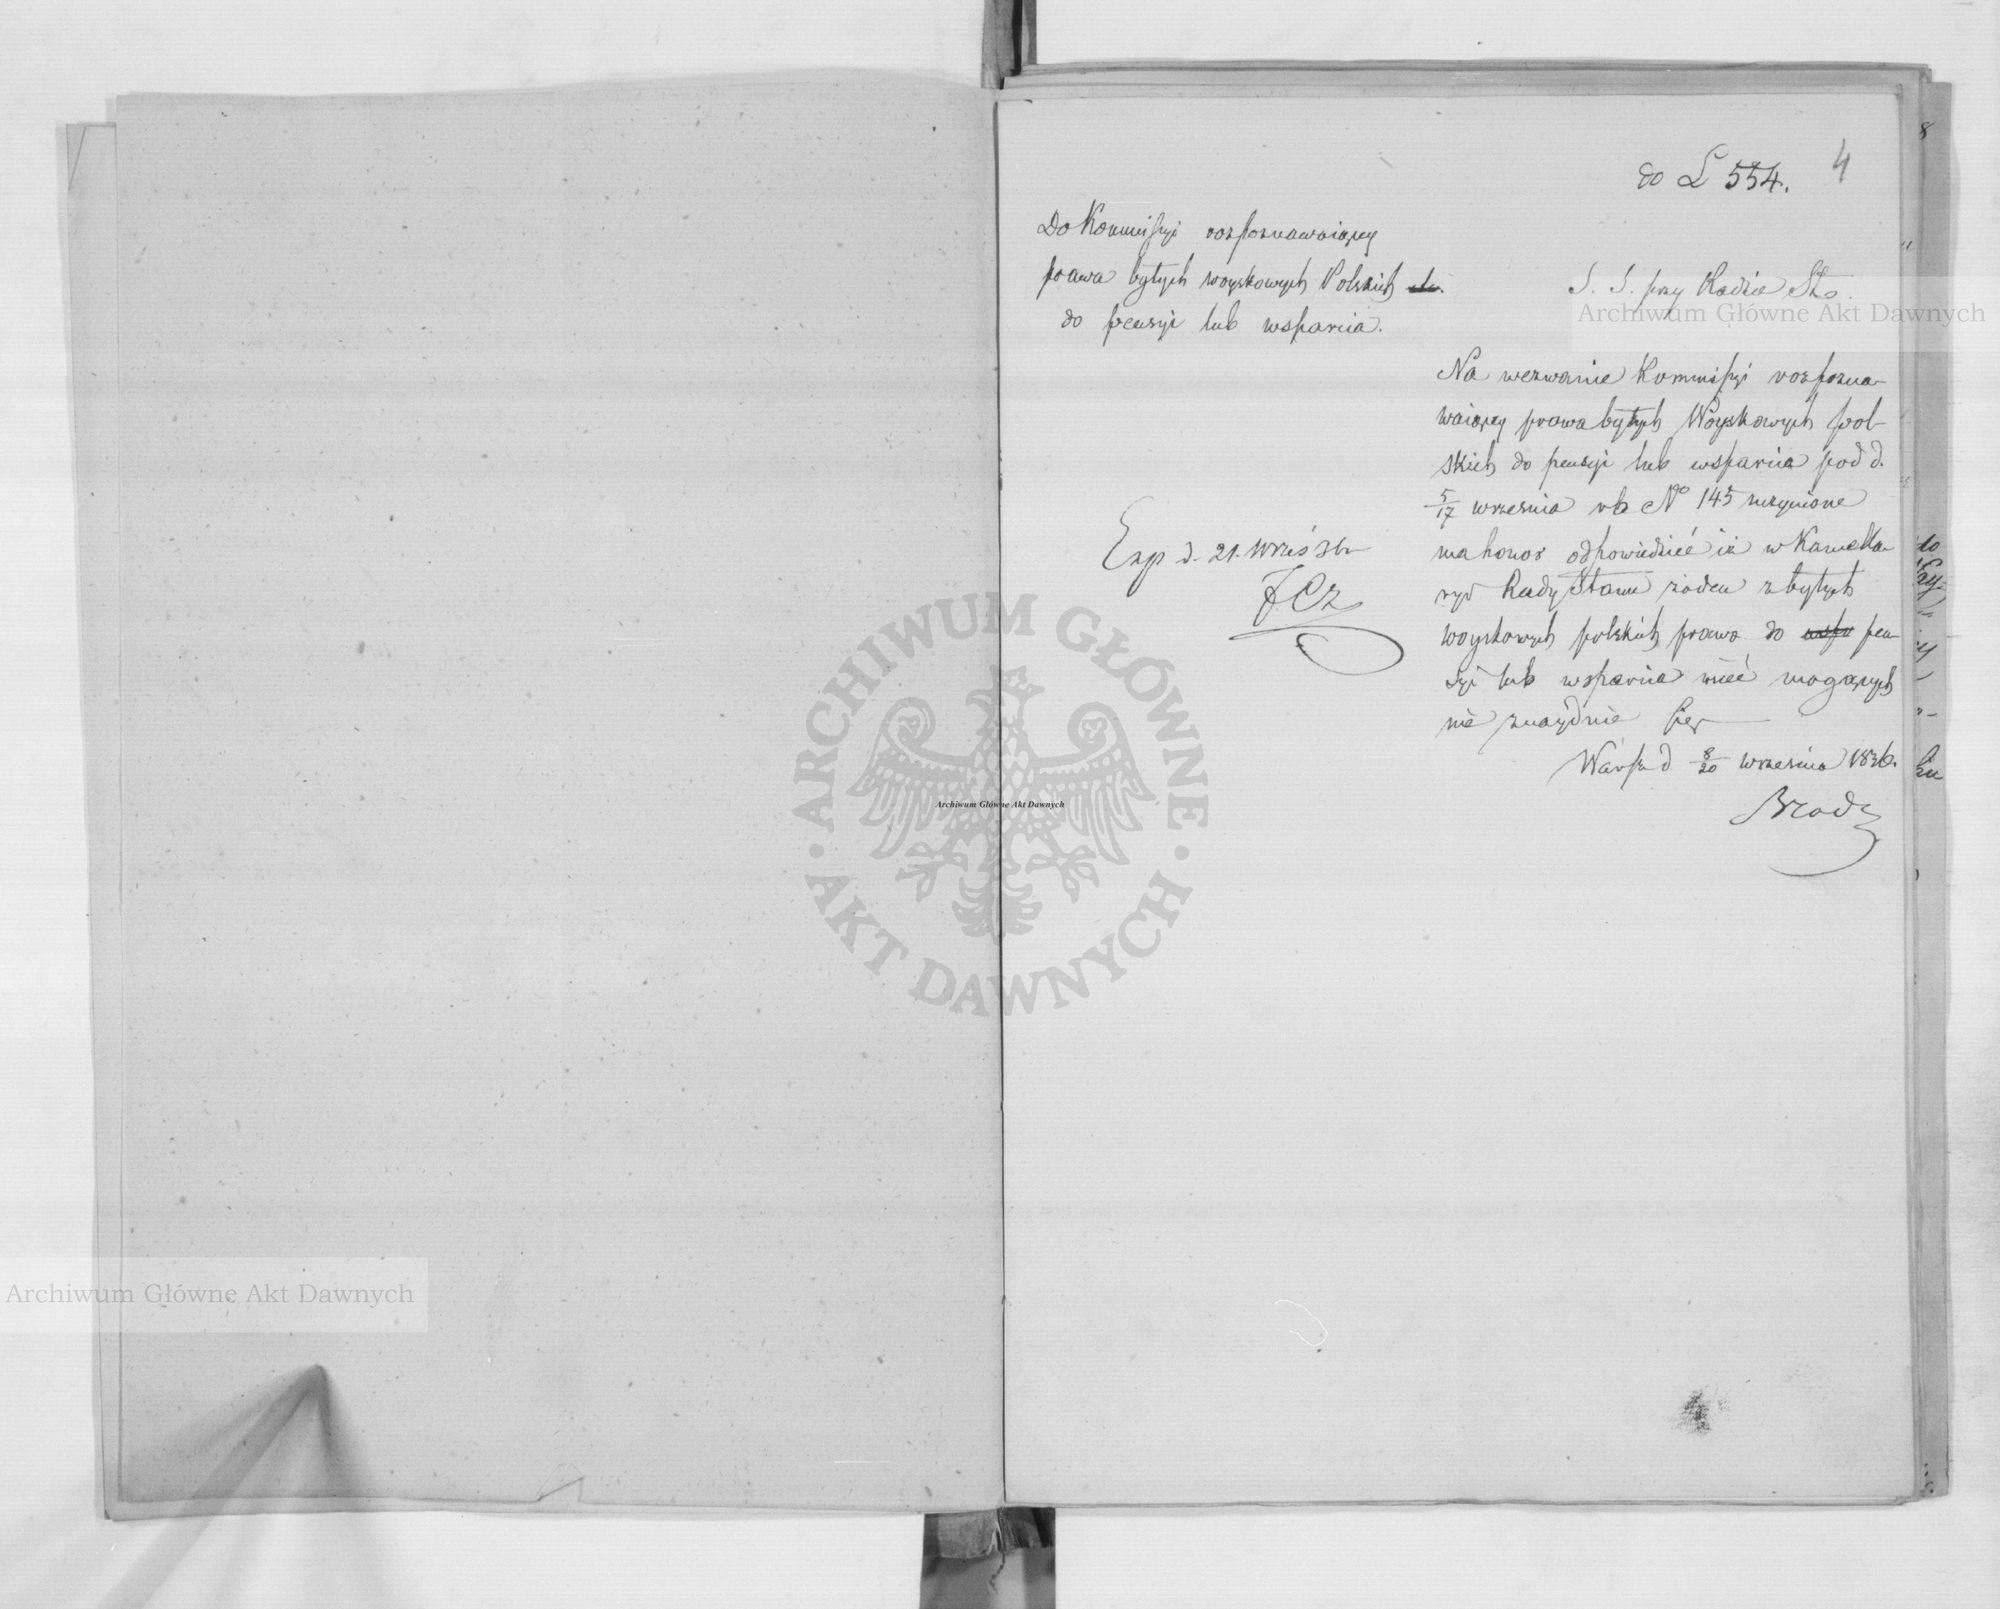 4
do L 554.
Do Kommissyi rozpoznawaiącey
prawa byłych woyskowych Polskich
do pensyi lub wsparcia.
S. S. przy Radzie Stu.
Archiwum Główne Akt Dawnych
Na wezwanie Kommissyi rozpozna-
waiącey prawa byłych Woyskowych pol-
skich do pensyi lub wsparcia pod d.
5/17 września rb No 145 uczynione
ma honor odpowiedzieć iż w Kancella-
ryi Rady Stanu żaden z byłych
woyskowych polskich prawo do wspa pen
syi lub wsparcia mieć mogących
nie znayduie się
Warsz d 8/20 września 1836.
Brodz
Exp d. 21. Wrześ 36
ARCHIWUM GŁÓWNE
AKT DAWNYCH
Archiwum Główne Akt Dawnych
Archiwum Główne Akt Dawnych